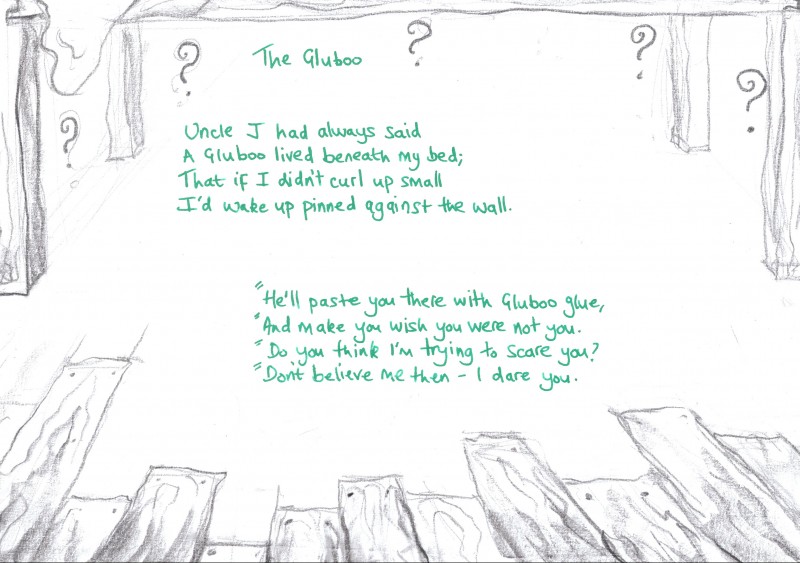 ?
?
?
?
?
The Gluboo
Uncle J had always said
A Gluboo lived beneath my bed;
That if I didn't curl up small
I'd wake up pinned against the wall.
"He'll paste you there with Gluboo glue,
"And make you wish you were not you.
"Do you think I'm trying to scare you?
"Don't believe me then - I dare you.